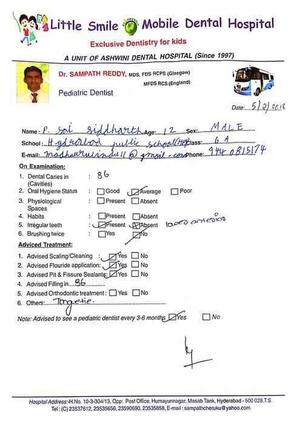 Little Smile Mobile Dental Hospital
Exclusive Dentistry for kids
A UNIT OF ASHWINI DENTAL HOSPITAL (Since 1997)
Dr. SAMPATH REDDY, MDS, FDS RCPS (Glasgow)
MFDS RCS (England)
Pediatric Dentist
Date: 5/2/2018
Name: P. Sai Siddharth Age: 12 Sex: MALE
School: Hyderabad public school Class: 6A
E-mail: @gmail.com Phone: 9440815174
On Examination:
1. Dental Caries in (Cavities) : 36
2. Oral Hygiene Status : Good Average Poor
3. Physiological Spaces : Present Absent
4. Habits : Present Absent
5. Irregular teeth : Present Absent
5. Brushing twice : Yes No
Adviced Treatment:
1. Advised Scaling/Cleaning : Yes No
2. Advised Flouride application: Yes No
3. Advised Pit & Fissure Sealants: Yes No
4. Advised Filling in. 36
5. Advised Orthodontic treatment : Yes No
6. Others:
Note: Advised to see a pediatric dentist every 3-6 months Yes No
Hospital Address:-H.No. 10-3-304/13, Opp: Post Office, Humayunnagar, Masab Tank, Hyderabad - 500 028, T.S.
Tel: (C) 23537612, 23535656, 23590690, 23535858, E-mail : sampathchenuku@yahoo.com